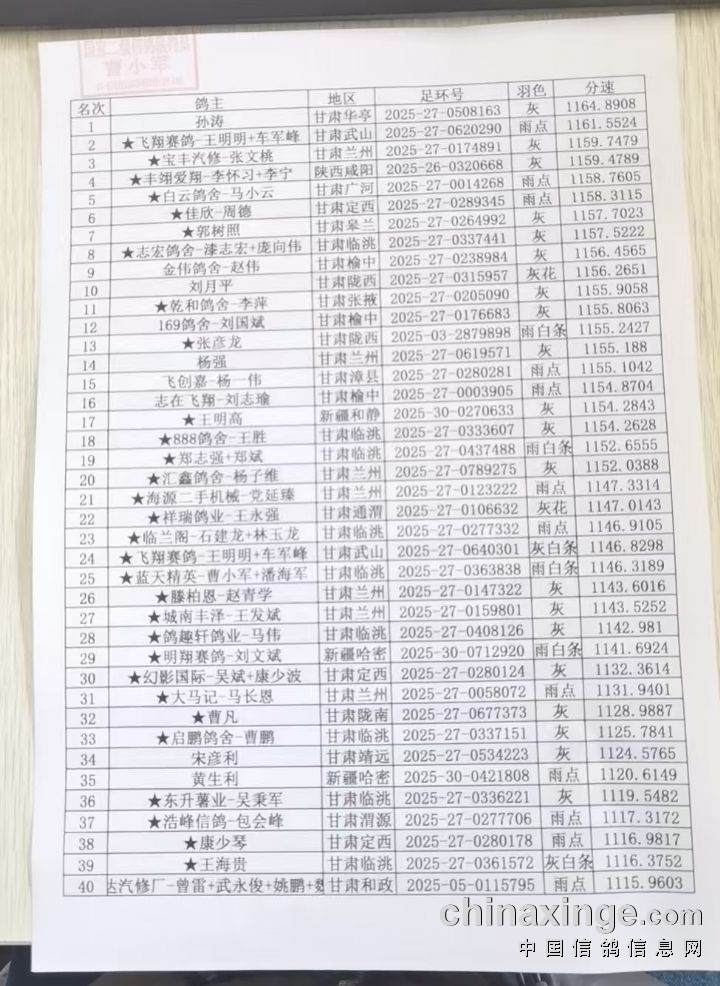 国家二级信鸽裁判员
曹小军
名次 鸽主 地区 足环号 羽色 分速
1 孙涛 甘肃华亭 2025-27-0508163 灰 1164.8908
2 ★飞翔赛鸽-王明明+车军峰 甘肃武山 2025-27-0620290 雨点 1161.5524
3 ★宝丰汽修-张文桃 甘肃兰州 2025-27-0174891 灰 1159.7479
4 ★丰翊爱翔-李怀习+李宁 陕西咸阳 2025-26-0320668 灰 1159.4789
5 ★白云鸽舍-马小云 甘肃广河 2025-27-0014268 雨点 1158.7605
6 ★佳欣-周德 甘肃定西 2025-27-0289345 雨点 1158.3115
7 ★郭树照 甘肃皋兰 2025-27-0264992 灰 1157.7023
8 ★志宏鸽舍-漆志宏+庞向伟 甘肃临洮 2025-27-0337441 灰 1157.5222
9 金伟鸽舍-赵伟 甘肃榆中 2025-27-0238984 灰 1156.4565
10 刘月平 甘肃陇西 2025-27-0315957 灰花 1156.2651
11 ★乾和鸽舍-李萍 甘肃张掖 2025-27-0205090 灰 1155.9058
12 169鸽舍-刘国斌 甘肃榆中 2025-27-0176683 灰 1155.8063
13 ★张彦龙 甘肃陇西 2025-03-2879898 雨白条 1155.2427
14 杨强 甘肃兰州 2025-27-0619571 灰 1155.188
15 飞创嘉-杨 伟 甘肃漳县 2025-27-0280281 雨点 1155.1042
16 志在飞翔-刘志瑜 甘肃榆中 2025-27-0003905 雨点 1154.8704
17 ★王明高 新疆和静 2025-30-0270633 灰 1154.2843
18 ★888鸽舍-王胜 甘肃临洮 2025-27-0333607 灰 1154.2628
19 ★郑志强+郑斌 甘肃临洮 2025-27-0437488 雨白条 1152.6555
20 ★汇鑫鸽舍-杨子维 甘肃兰州 2025-27-0789275 灰 1152.0388
21 ★海源二手机械-党延臻 甘肃兰州 2025-27-0123222 雨点 1147.3314
22 ★祥瑞鸽业-王永强 甘肃通渭 2025-27-0106632 灰花 1147.0143
23 ★临兰阁-石建龙+林玉龙 甘肃临洮 2025-27-0277332 雨点 1146.9105
24 ★飞翔赛鸽-王明明+车军峰 甘肃武山 2025-27-0640301 灰白条 1146.8298
25 ★蓝天精英-曹小军+潘海军 甘肃临洮 2025-27-0363838 雨白条 1146.3189
26 ★滕柏恩-赵青学 甘肃兰州 2025-27-0147322 灰 1143.6016
27 ★城南丰泽-王发斌 甘肃兰州 2025-27-0159801 灰 1143.5252
28 ★鸽趣轩鸽业-马伟 甘肃临洮 2025-27-0408126 灰 1142.981
29 ★明翔赛鸽-刘文斌 新疆哈密 2025-30-0712920 雨白条 1141.6924
30 ★幻影国际-吴斌+康少波 甘肃定西 2025-27-0280124 灰 1132.3614
31 ★大马记-马长恩 甘肃兰州 2025-27-0058072 雨点 1131.9401
32 ★曹凡 甘肃陇南 2025-27-0677373 灰 1128.9887
33 ★启鹏鸽舍-曹鹏 甘肃临洮 2025-27-0337151 灰 1125.7841
34 宋彦利 甘肃靖远 2025-27-0534223 灰 1124.5765
35 黄生利 新疆哈密 2025-30-0421808 雨点 1120.6149
36 ★东升薯业-吴秉军 甘肃临洮 2025-27-0336221 灰 1119.5482
37 ★浩峰信鸽-包会峰 甘肃渭源 2025-27-0277706 雨点 1117.3172
38 ★康少琴 甘肃定西 2025-27-0280178 雨点 1116.9817
39 ★王海贵 甘肃临洮 2025-27-0361572 灰白条 1116.3752
40 达汽修厂-曾雷+武永俊+姚鹏+ 甘肃和政 2025-05-0115795 雨点 1115.9603
chinaxinge.com
中国信鸽信息网